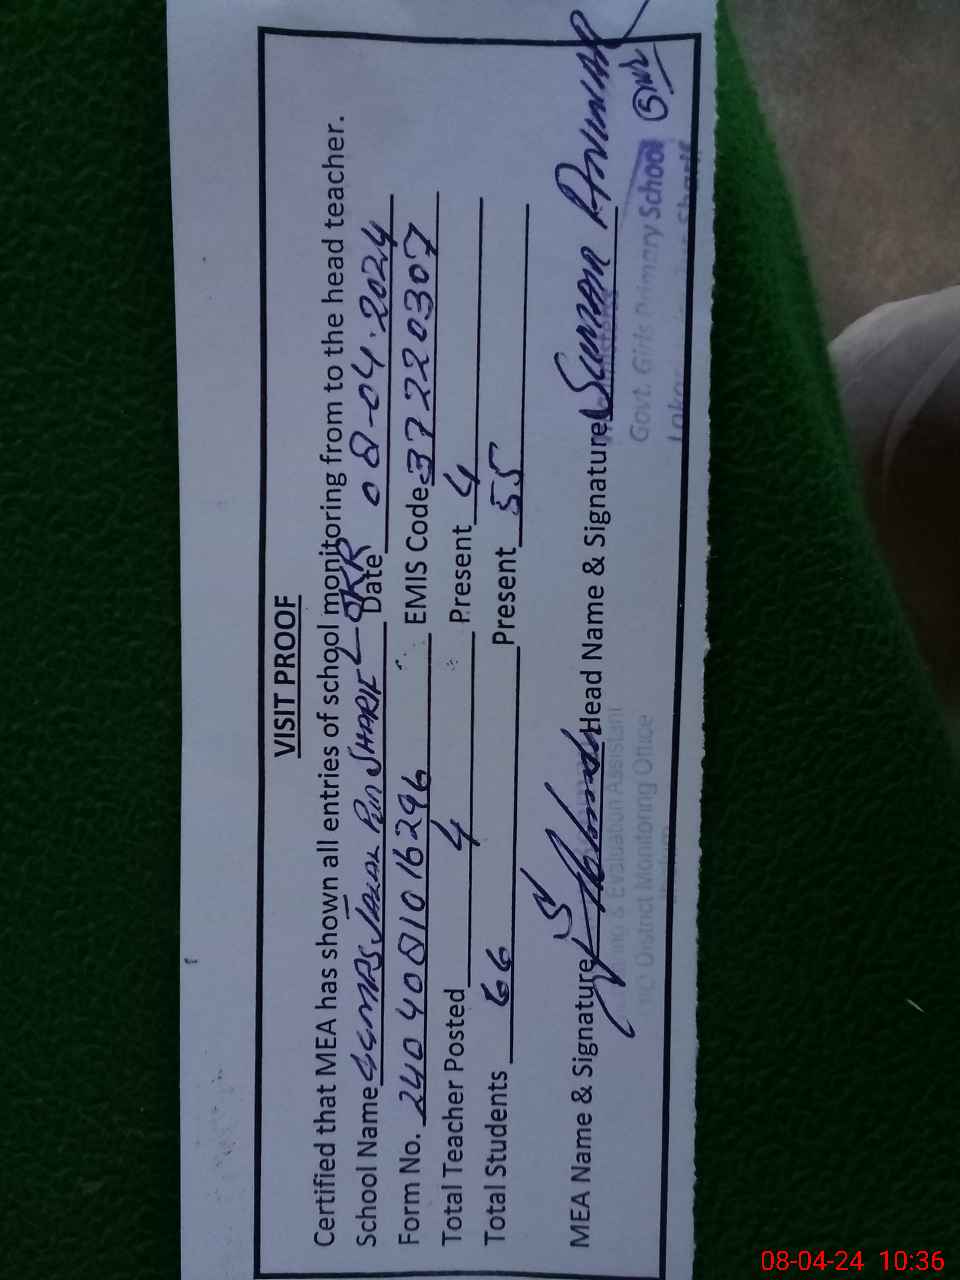 VISIT PROOF
Certified that MEA has shown all entries of school monitoring from to the head teacher.
School Name GGMPS JALAL PUR SHARIF LKR Date 08-04-2024
Form No. 2404081016296 EMIS Code 37220307
Total Teacher Posted 4 Present 4
Total Students 66 Present 55
MEA Name & Signature Head Name & Signature
& Evaluation Assistant Govt. Girls Primary School
District Monitoring Office
08-04-24 10:36